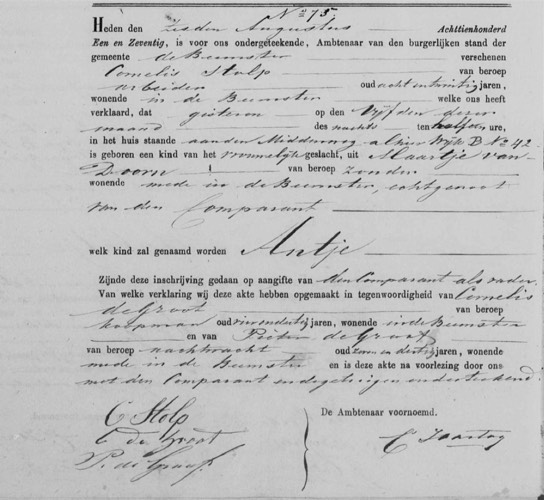 No 75
Heden den Zesden Augustus Achttienhonderd
Een en Zeventig, is voor ons ondergeteekende, Ambtenaar van den burgerlijken stand der
gemeente de Beemster verschenen
Cornelis Stolp van beroep
arbeider oud acht en twintig jaren,
wonende in de Beemster welke ons heeft
verklaard, dat gisteren op den Vijfden dezer
maand des nachts ten half een ure,
in het huis staande aan den Middenweg alhier Wijk D No 42
is geboren een kind van het vrouwelijk geslacht, uit Maartje van
Doorn van beroep zonder
wonende mede in de Beemster, echtgenoot
van den Comparant
welk kind zal genaamd worden Antje
Zijnde deze inschrijving gedaan op aangifte van den Comparant als vader.
Van welke verklaring wij deze akte hebben opgemaakt in tegenwoordigheid van Cornelis
de Groot van beroep
koopman oud vier en dertig jaren, wonende in de Beemster
en van Pieter de
van beroep nachtwacht oud zeven en dertig jaren, wonende
mede in de Beemster en is deze akte na voorlezing door ons
met den Comparant en de getuigen onderteekend.
C Stolp
C de Groot
P. de
De Ambtenaar voornoemd.
C